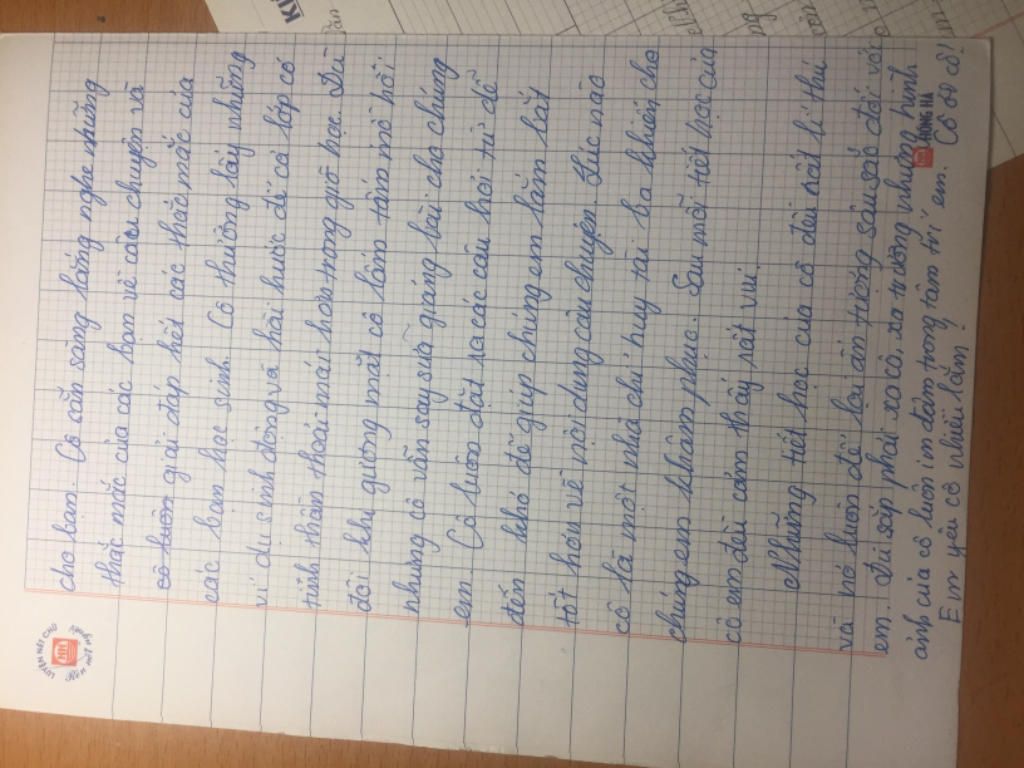 cho bạn. Cô sẵn sàng lắng nghe những
thắc mắc của các bạn về câu chuyện và
cô luôn giải đáp hết các thắc mắc của
các bạn học sinh. Cô thường lấy những
ví dụ sinh động và hài hước để cả lớp có
tinh thần thoải mái hơn trong giờ học. Dù
đôi khi gương mặt cô lấm tấm mồ hôi
nhưng cô vẫn say sưa giảng bài cho chúng
em. Cô luôn đặt ra các câu hỏi từ dễ
đến khó để giúp chúng em nắm bắt
tốt hơn về nội dung câu chuyện. Lúc nào
cô là một nhà chỉ huy tài ba khiến cho
chúng em khâm phục. Sau mỗi tiết học của
cô em đều cảm thấy rất vui.
Những tiết học của cô đều rất lí thú
và nó luôn để lại ấn tượng sâu sắc đối với
em. Dù sắp phải xa cô, xa trường nhưng hình
ảnh của cô luôn in đậm trong tâm trí em. Cô ơi cô!
Em yêu cô nhiều lắm!
LUYỆN NÉT CHỮ
Rèn nết người
HH
HỒNG HÀ